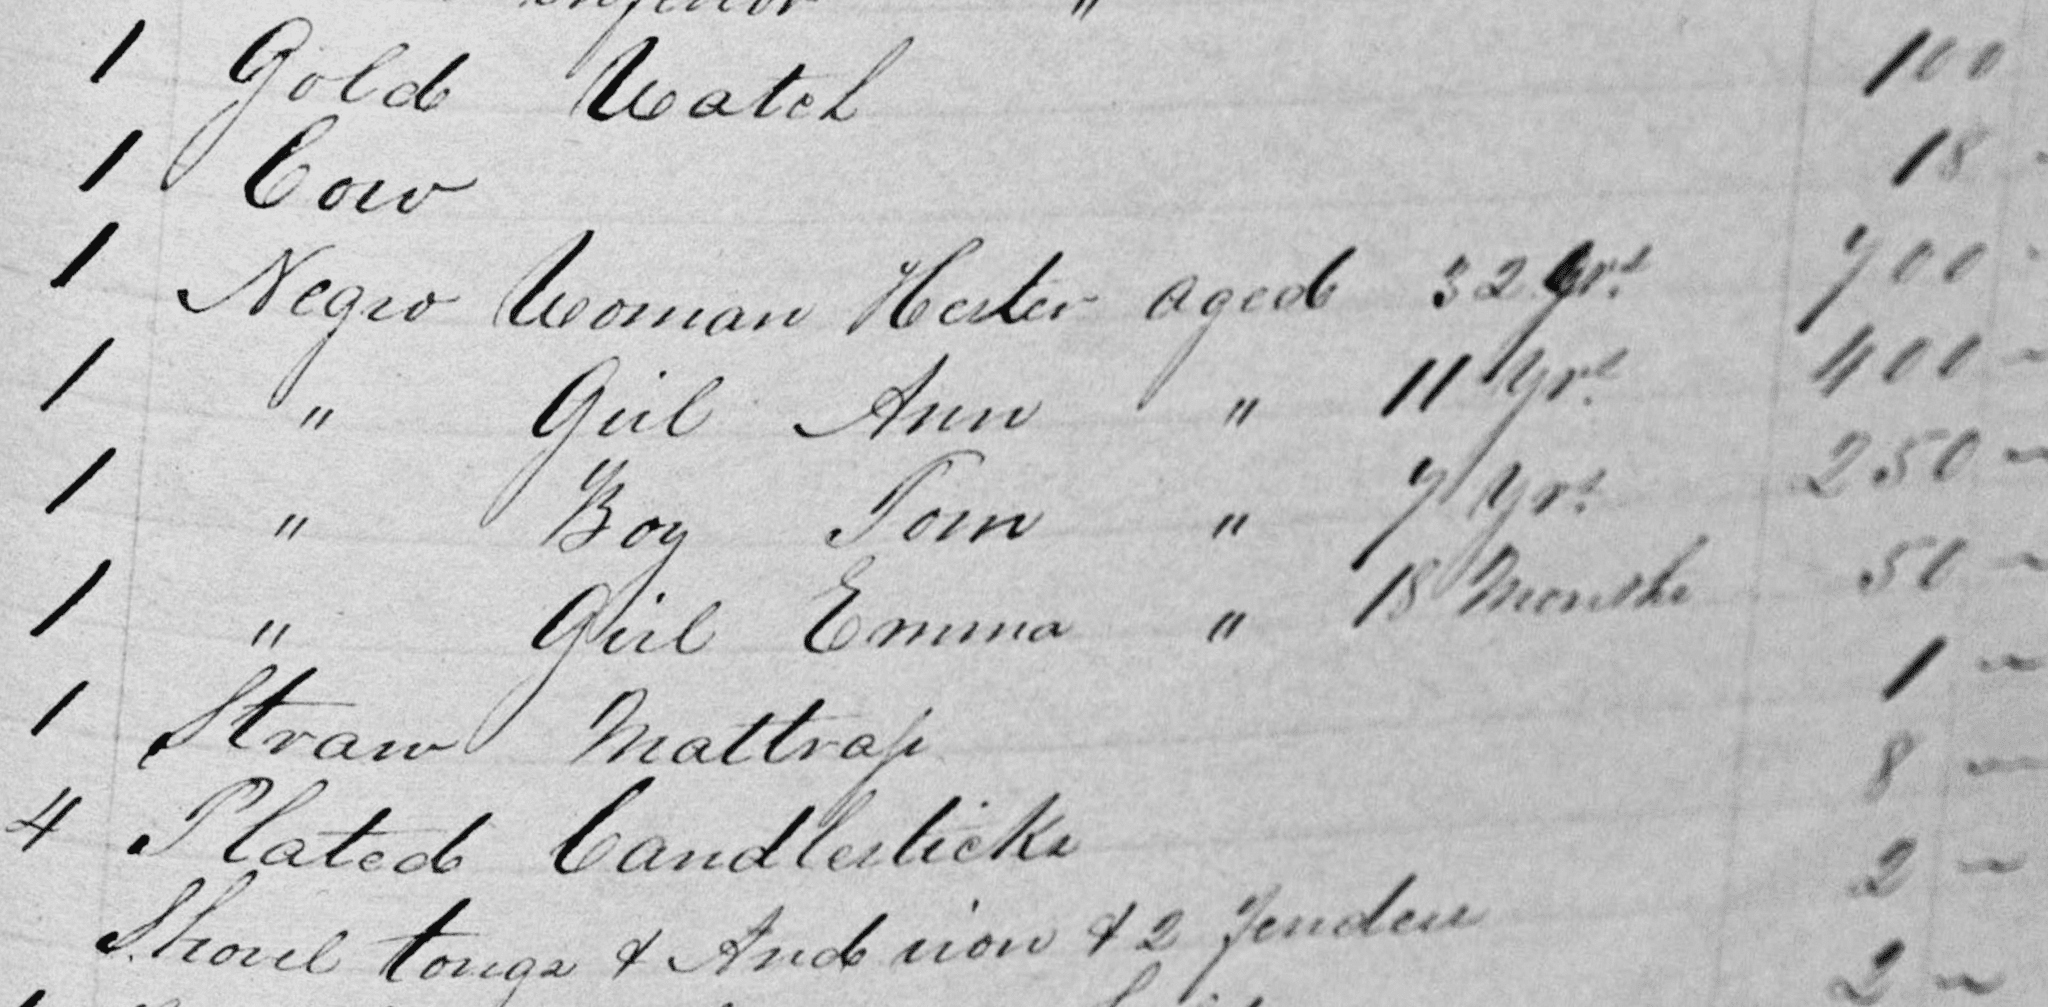 Inferior "
1 Gold Watch 100
1 Cow 18 -
1 Negro Woman Hester aged 32 Yrs. 700 -
1 " Girl Ann " 11 Yrs. 400 -
1 " Boy Tom " 7 Yrs. 250 -
1 " Girl Emma " 18 Months 50 -
1 Straw Mattrass 1 -
4 Plated Candlesticks 8 -
Shovel tongs & And iron & 2 fenders 2 -
2 -